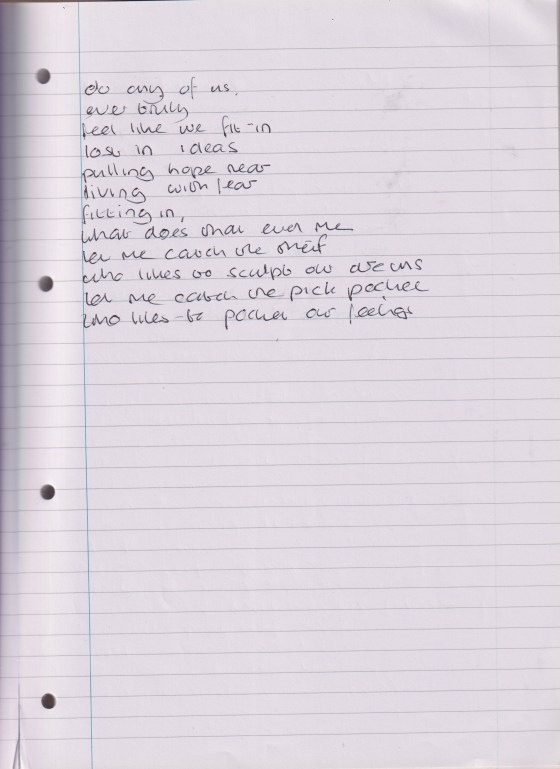 do any of us.
ever truly
feel like we fit-in
lost in ideas
pulling hope near
living with fear
fitting in,
what does that even me
let me catch the theif
who likes to sculpt our
let me catch the pick pocket
who likes to pocket our feelings